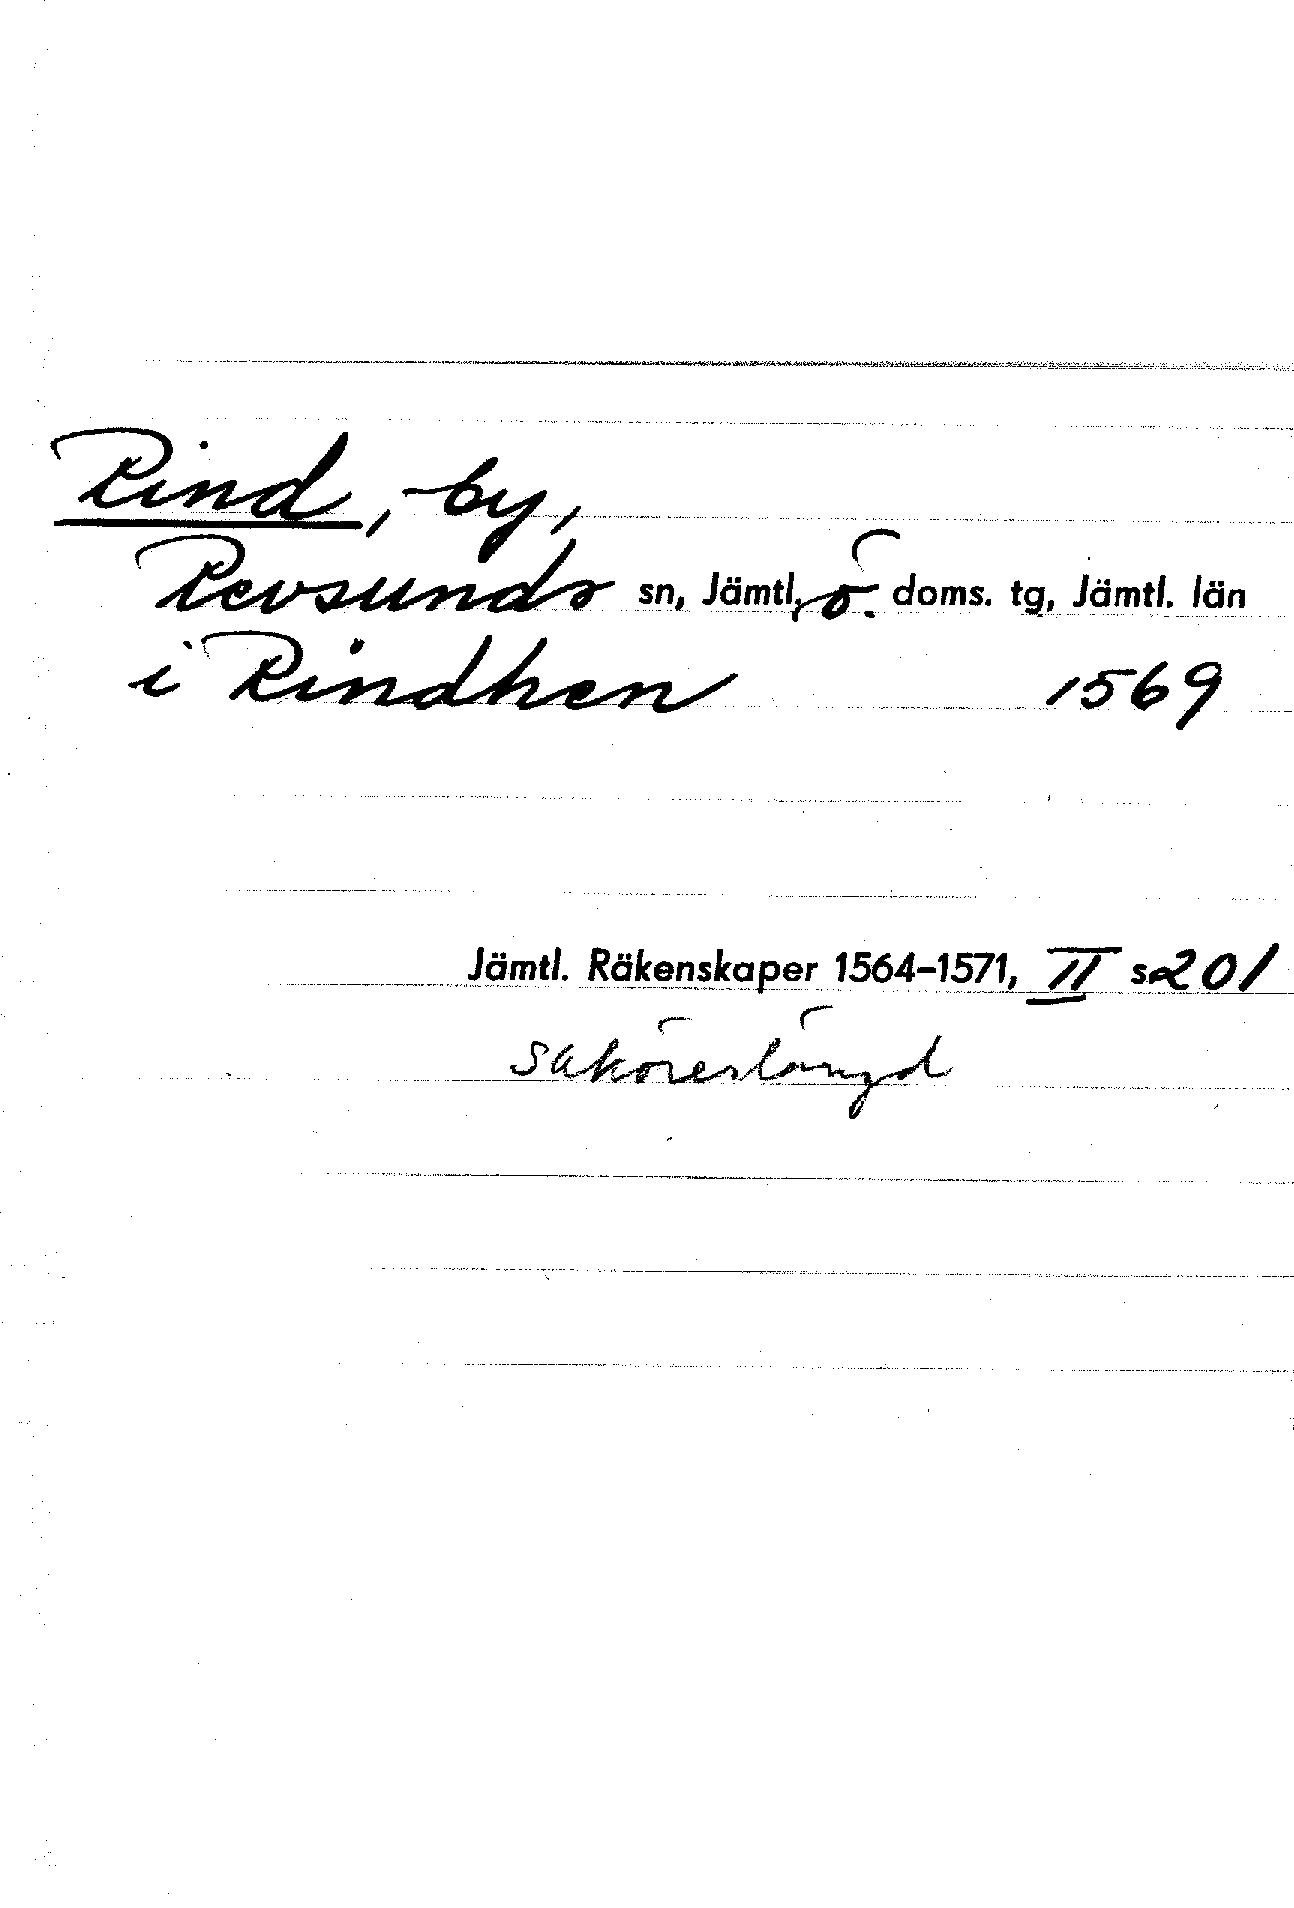 Rind, by,
Revsunds sn, Jämtl, ö. doms. tg, Jämtl. län
i Rindhen 1569
Jämtl. Räkenskaper 1564-1571, II s 201
saköreslängd